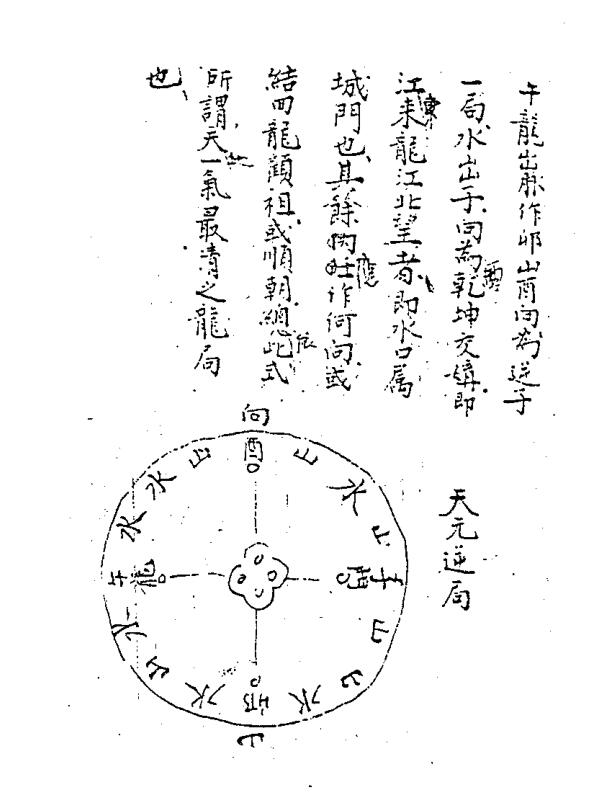 午龍出脉作卯山酉向為逆子
一局水出子向為乾坤交媾即
江東來龍江北望者即水口属
城門也其餘作何向或
結回龍顧祖或順朝總依此式
所謂天一氣最清之龍局
也
天元逆局
向
酉
山
水
山
子
山
山
水
卯
山
水
山
水
午
龍
水
水
山